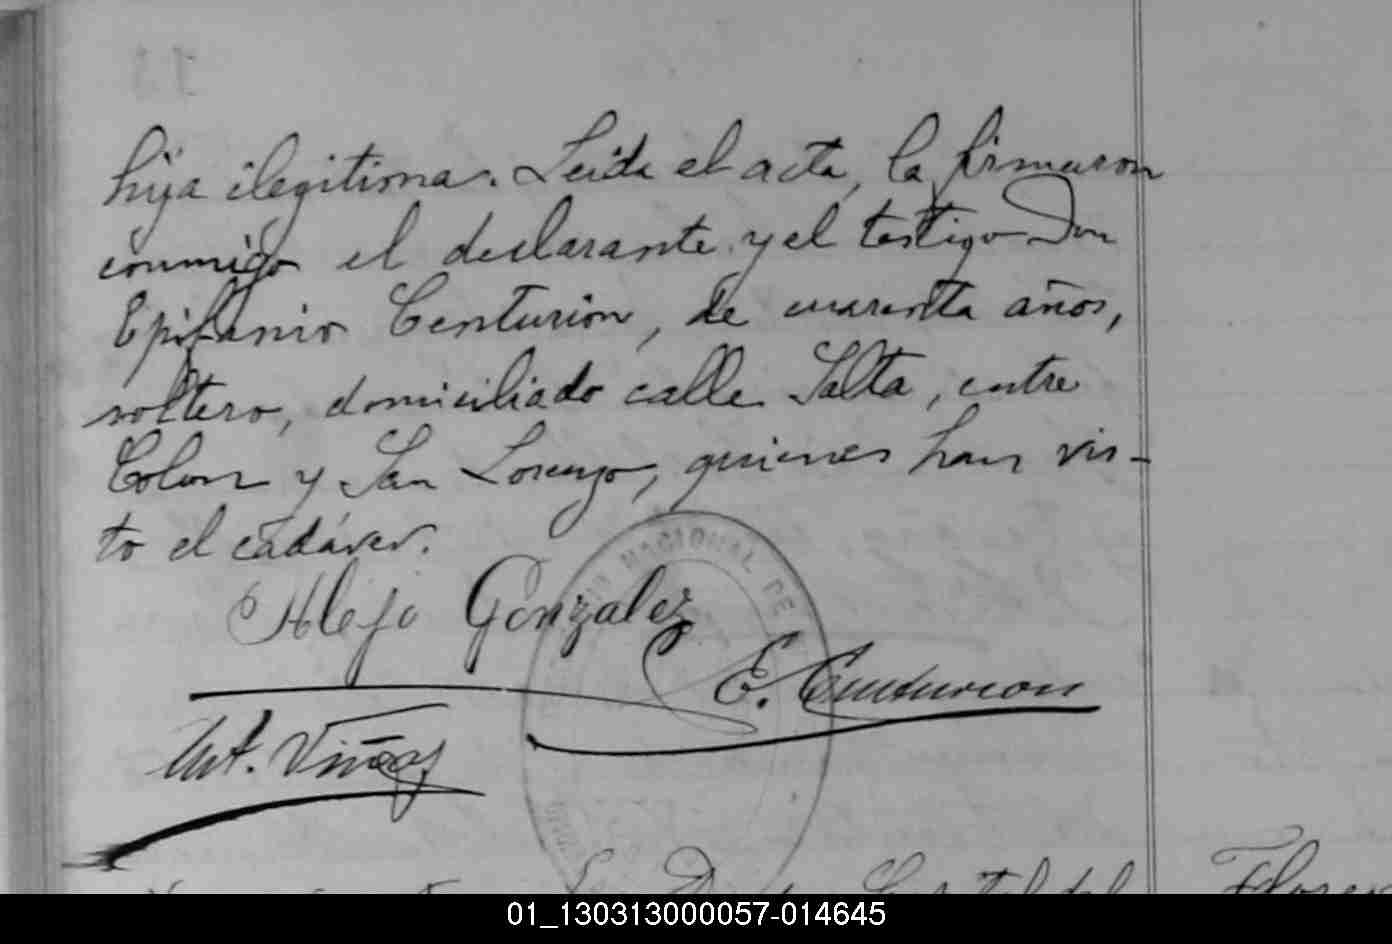 hija ilegitima. Leida el acta, la firmaron
conmigo el declarante y el testigo Don
Epifanio Centurion, de cuarenta años,
soltero, domiciliado calle Salta, entre
Colon y San Lorenzo, quienes han vis-
to el cadáver.
NACIONAL DE
Alejo Gonzalez
E. Centurion
Ant. Viñas
01_130313000057-014645